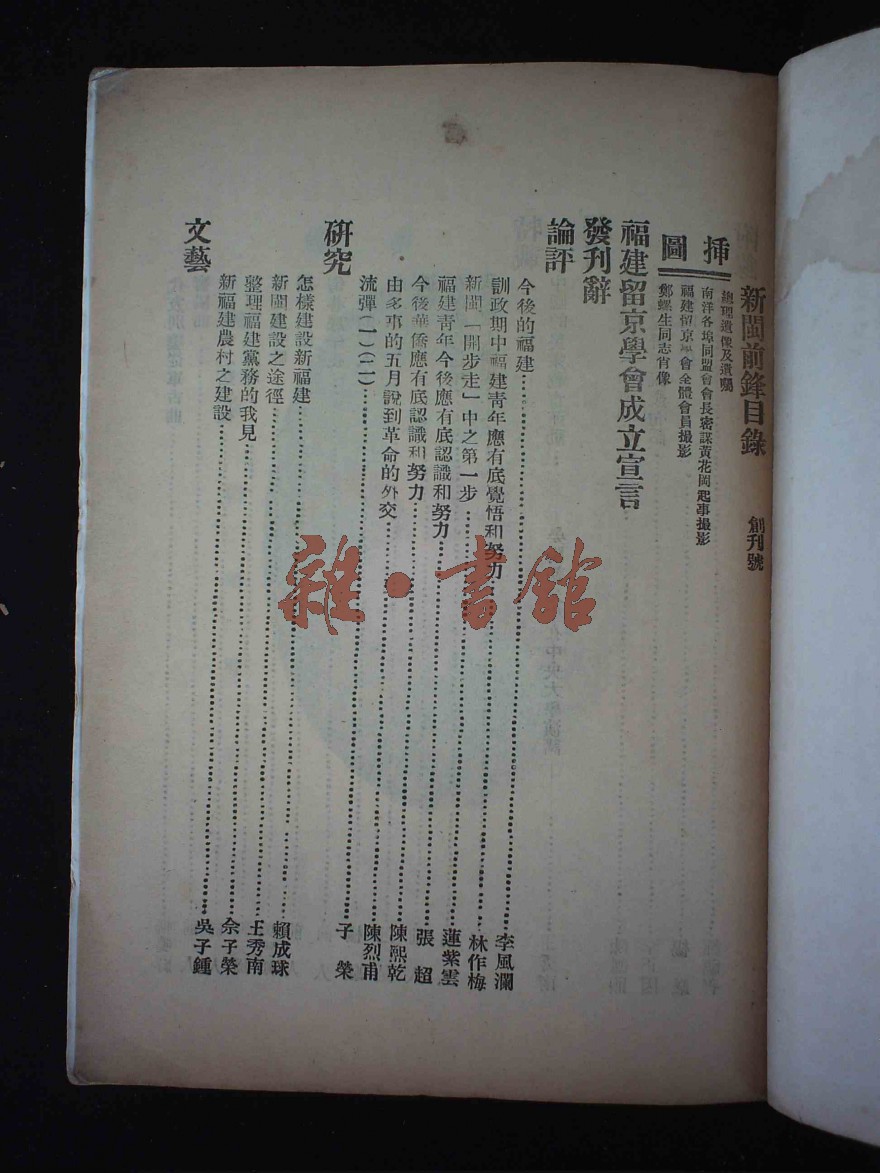 新閩前鋒目錄 創刊號
插圖
總理遺像及遺囑
南洋各埠同盟會會長密謀黃花岡起事撮影
福建留京學會全體會員撮影
鄭螺生同志肖像
福建留京學會成立宣言
發刊辭
論評
今後的福建……李風瀾
訓政期中福建青年應有底覺悟和努力……林作梅
新閩「開步走」中之第一步……蓮紫雲
福建青年今後應有底認識和努力……張 超
今後華僑應有底認識和努力……陳熙乾
由多事的五月說到革命的外交……陳烈甫
流彈(一)(二)……子 榮
研究
怎樣建設新福建……賴成球
新閩建設之途徑……王秀南
整理福建黨務的我見……佘子榮
新福建農村之建設……吳子鍾
文藝
雜·書館